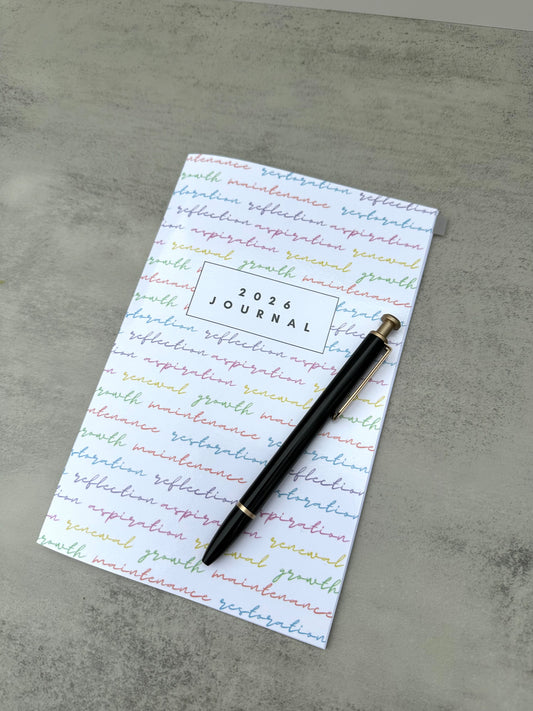 intenance restoration reflection
growth maintenance restoration
storation reflection aspiration
reflection aspiration renewal
aspiration renewal growth
renewal growth maintenance
growth
maintenance
2026
JOURNAL
restoration
reflection aspiration
aspiration renewal
renewal growth
growth maintenance
maintenance restoration
restoration reflection
reflection aspiration
aspiration renewal
renewal growth
growth maintenance
maintenance restoration